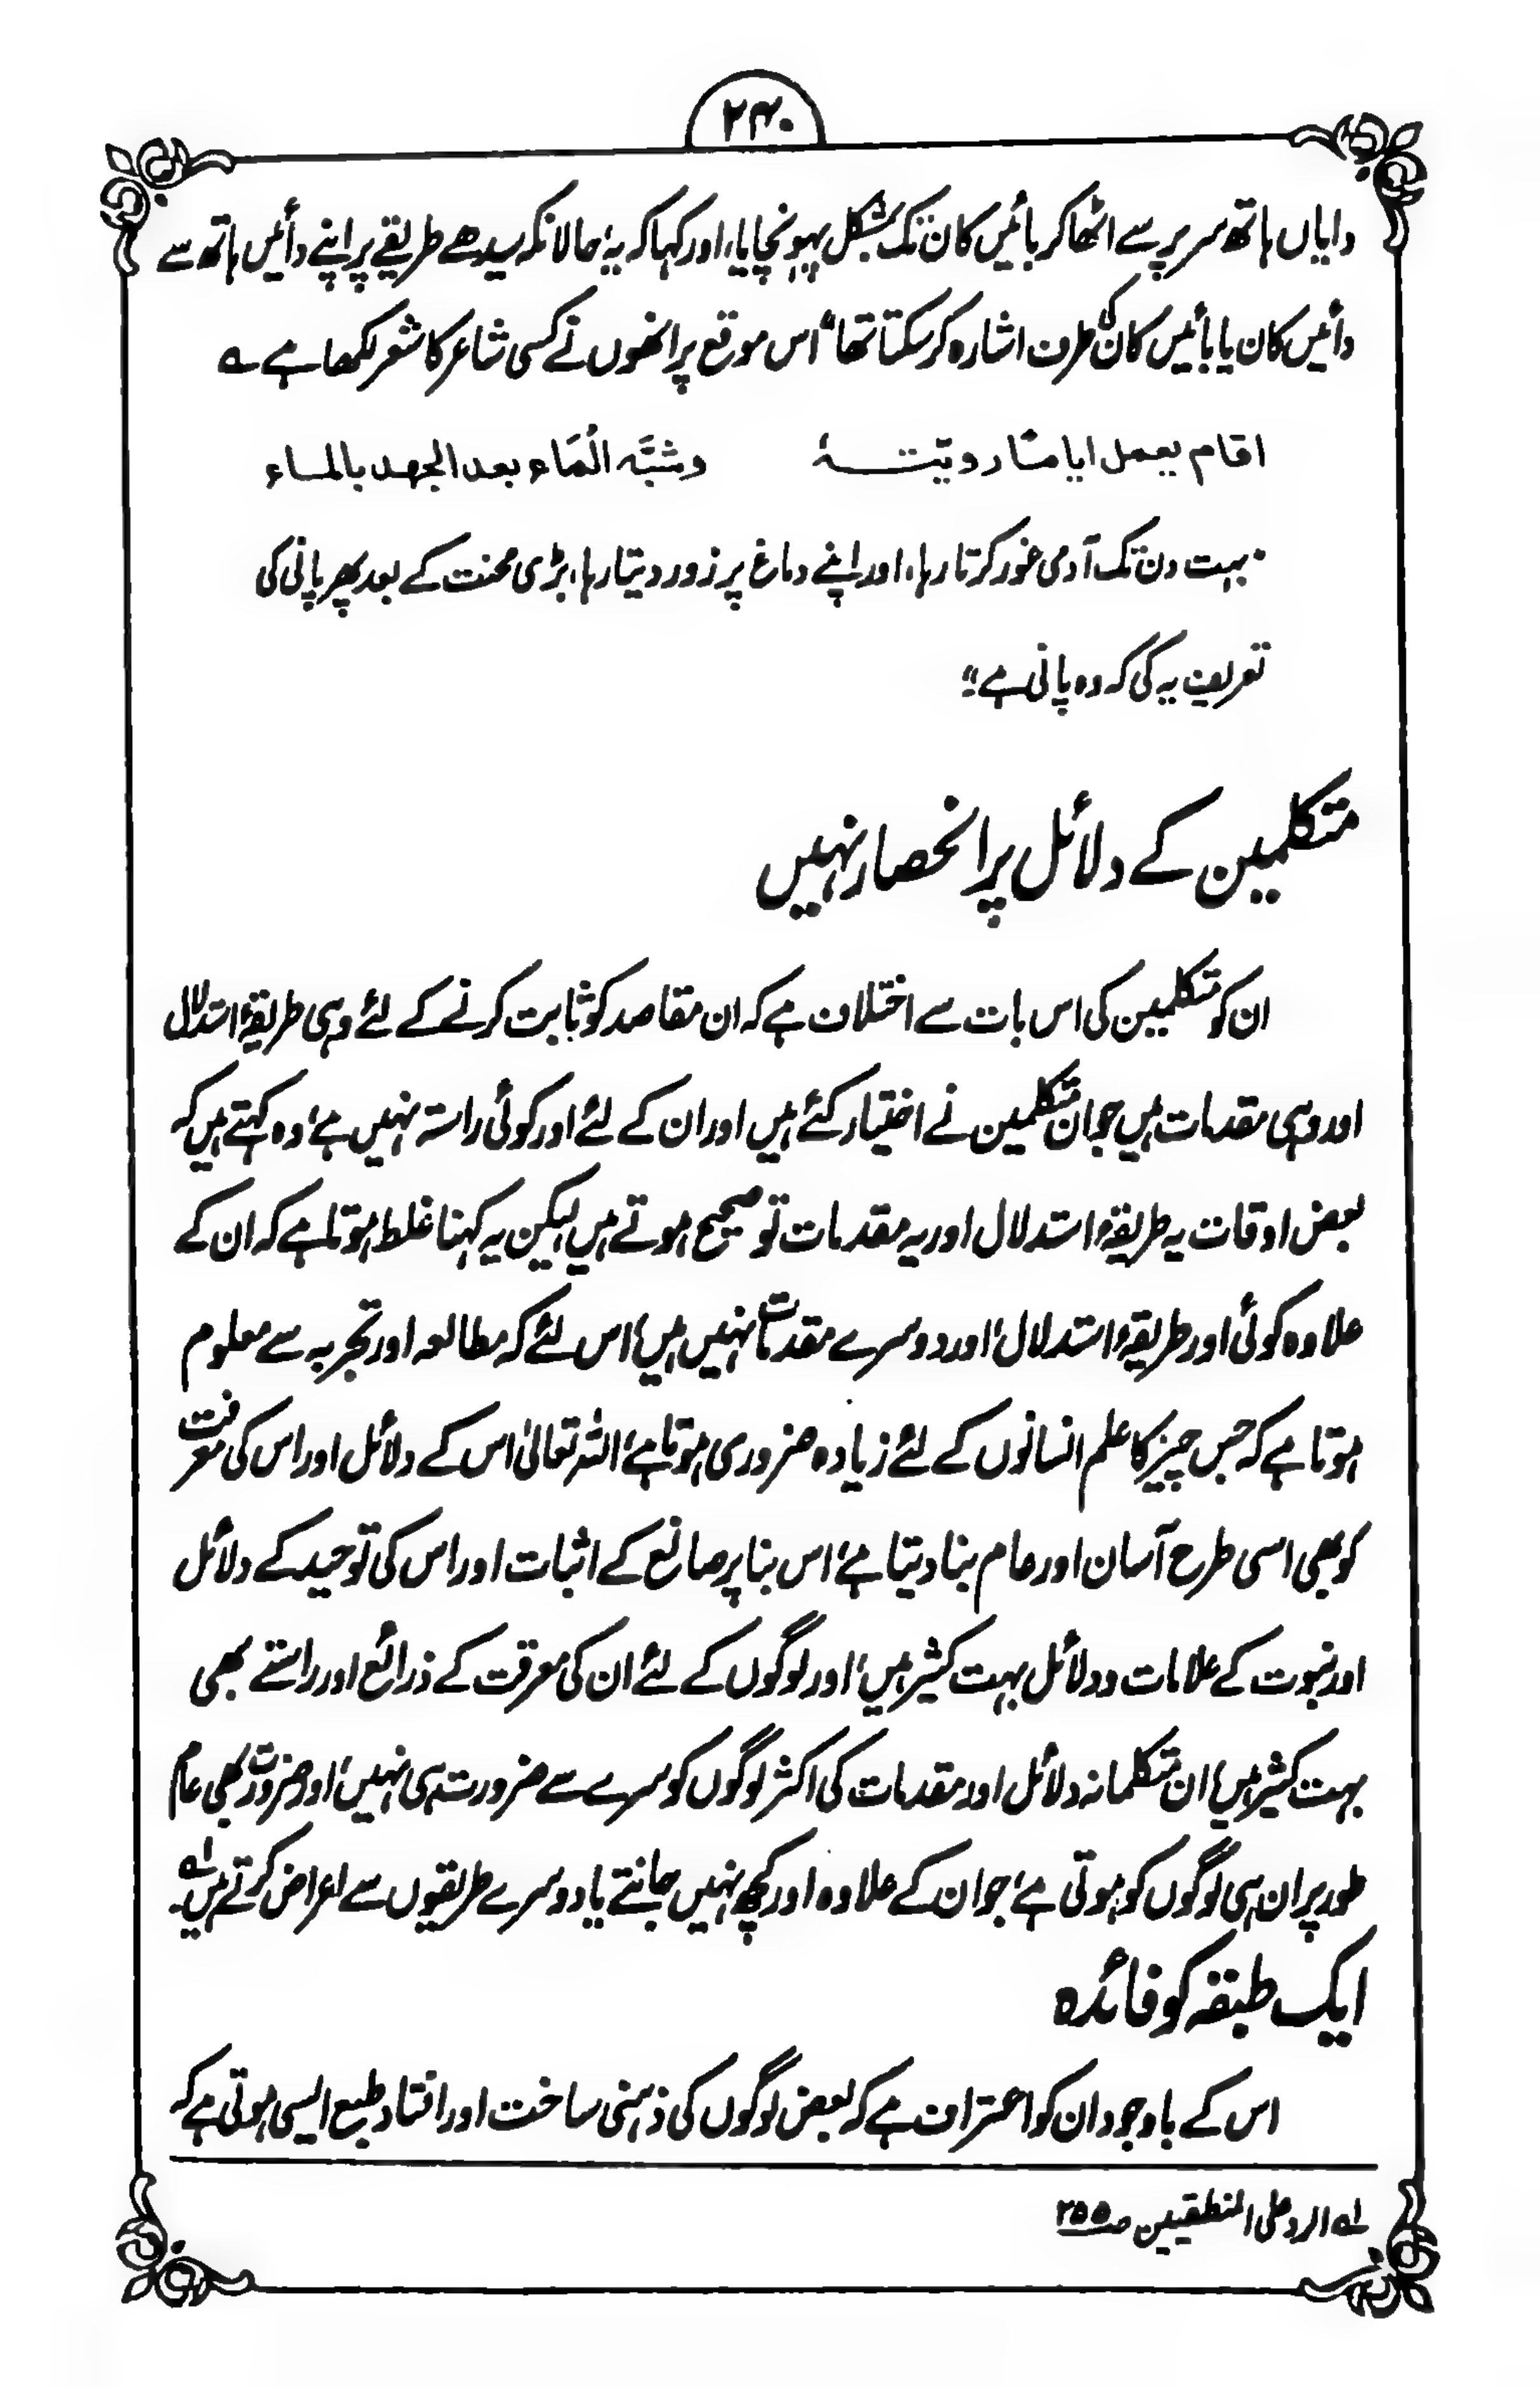 ۲۳۰
دایاں ہاتھ سر پر سے اٹھا کر بائیں کان تک بمشکل پہونچایا، اور کہا کہ یہ، حالانکہ سیدھے طریقے پر اپنے دائیں ہاتھ سے
دائیں کان یا بائیں کان کی طرف اشارہ کر سکتا تھا“ اس موقع پر انھوں نے کسی شاعر کا شعر لکھا ہے ؎
اقام یعمل ایامًا رویتہٗ وشبَّہ الْمَاء بعد الجھد بالماء
"بہت دن تک آدمی غور کرتا رہا، اور اپنے دماغ پر زور دیتا رہا، بڑی محنت کے بعد پھر پانی کی
تعریف یہ کی کہ وہ پانی ہے"
متکلمین کے دلائل پر انحصار نہیں
ان کو متکلمین کی اس بات سے اختلاف ہے کہ ان مقاصد کو ثابت کرنے کے لئے وہی طریقۂ استدلال
اور وہی مقدمات ہیں جو ان متکلمین نے اختیار کئے ہیں اور ان کے لئے اور کوئی راستہ نہیں ہے، وہ کہتے ہیں کہ
بعض اوقات یہ طریقۂ استدلال اور یہ مقدمات تو صحیح ہوتے ہیں لیکن یہ کہنا غلط ہوتا ہے کہ ان کے
علاوہ کوئی اور طریقۂ استدلال، اور دوسرے مقدمات نہیں ہیں، اس لئے کہ مطالعہ اور تجربہ سے معلوم
ہوتا ہے کہ جس چیز کا علم انسانوں کے لئے زیادہ ضروری ہوتا ہے، اللہ تعالیٰ اس کے دلائل اور اس کی معرفت
کو بھی اسی طرح آسان اور عام بنا دیتا ہے، اس بنا پر صانع کے اثبات اور اس کی توحید کے دلائل
اور نبوت کے علامات و دلائل بہت کثیر ہیں، اور لوگوں کے لئے ان کی معرفت کے ذرائع اور راستے بھی
بہت کثیر ہیں، ان متکلمانہ دلائل اور مقدمات کی اکثر لوگوں کو سرے سے ضرورت ہی نہیں، اور ضرورت بھی عام
طور پر ان ہی لوگوں کو ہوتی ہے، جو ان کے علاوہ اور کچھ نہیں جانتے یا دوسرے طریقوں سے اعراض کرتے ہیں۔ لہ
ایک طبقہ کو فائدہ
اس کے باوجود ان کو اعتراف ہے کہ بعض لوگوں کی ذہنی ساخت اور افتاد طبع ایسی ہوتی ہے کہ
لہ الرد علی المنطقیین صـ ۲۵۵